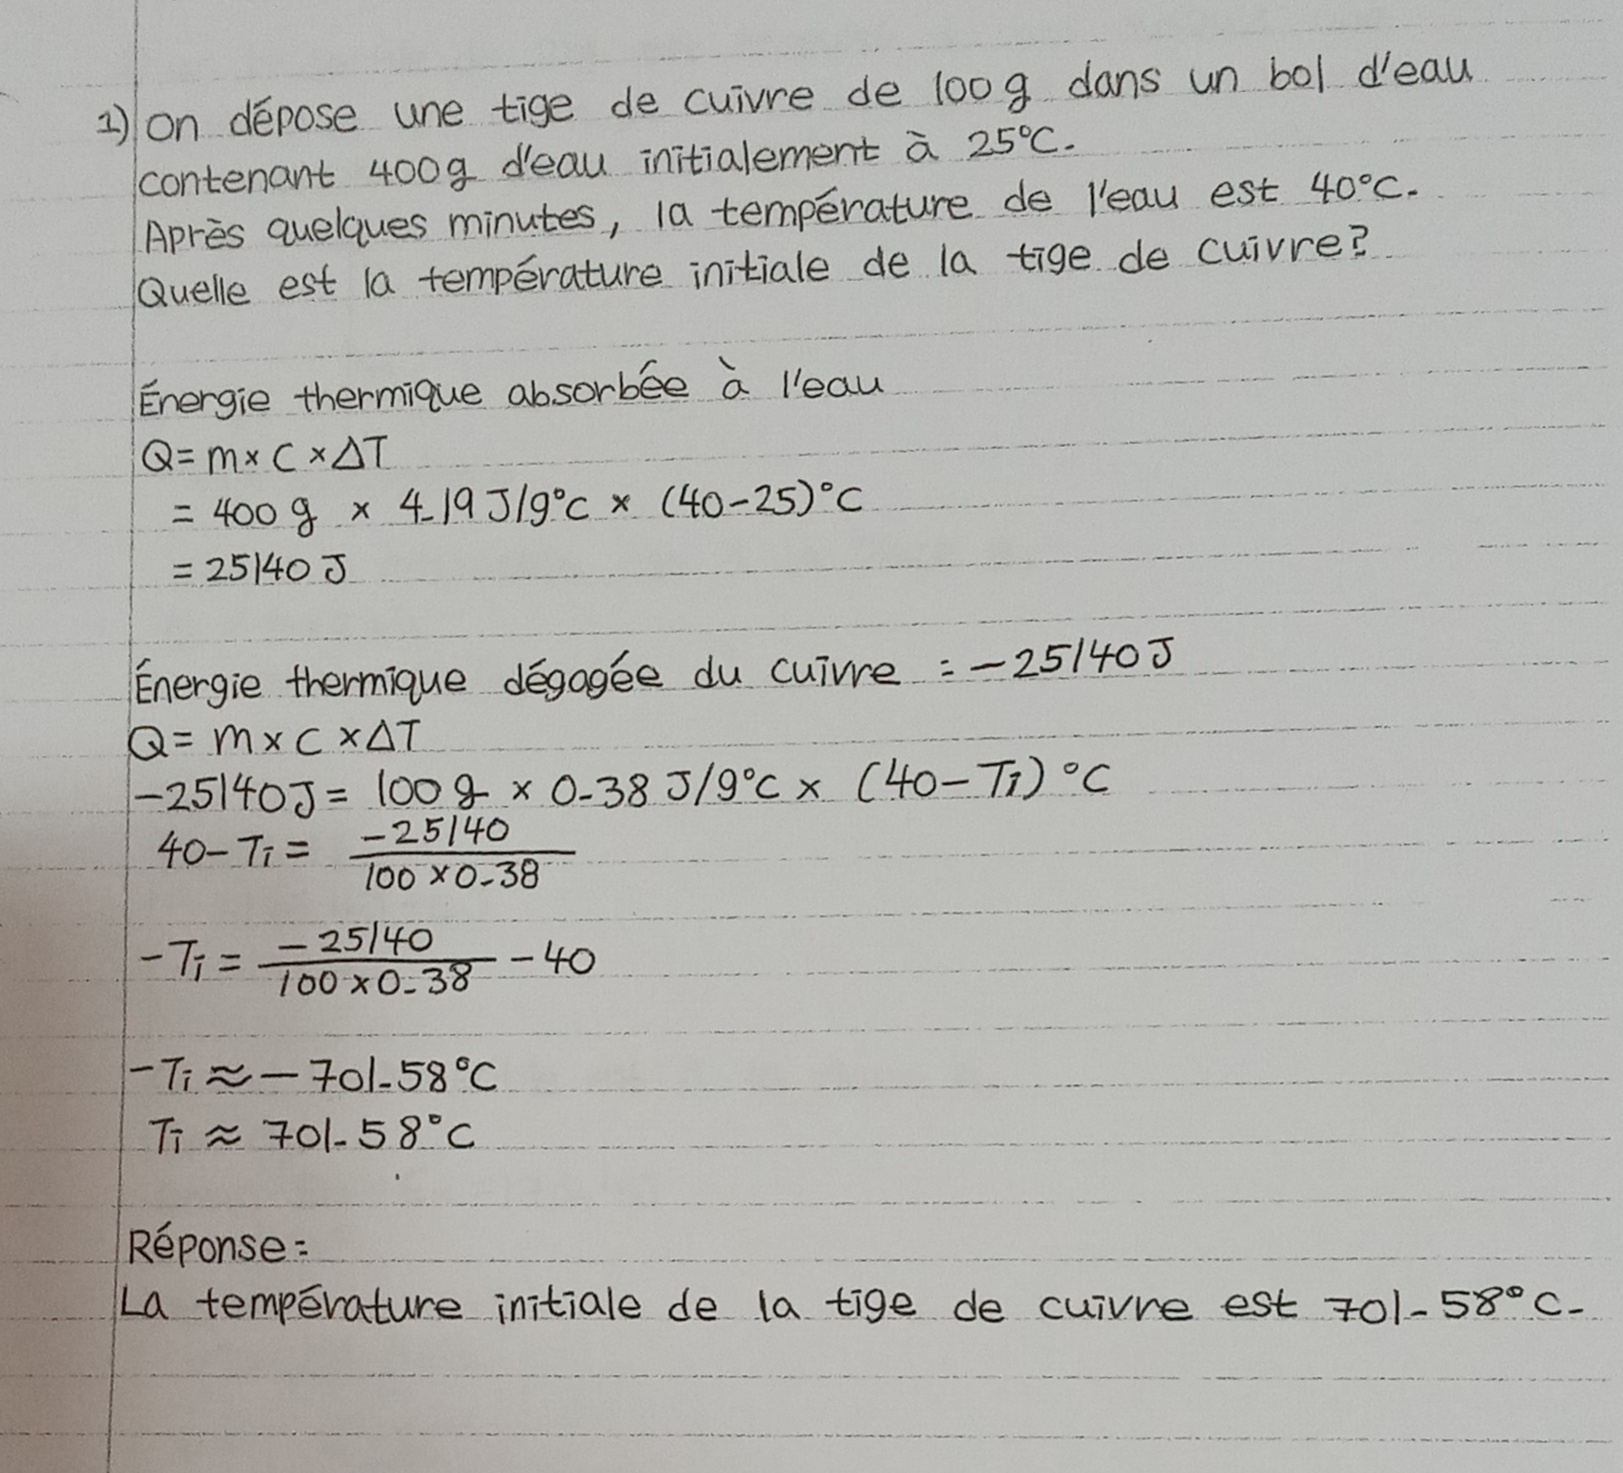 1) On dépose une tige de cuivre de 100g dans un bol d'eau
contenant 400g d'eau initialement à 25°C.
Après quelques minutes, la température de l'eau est 40°C.
Quelle est la température initiale de la tige de cuivre?
Énergie thermique absorbée à l'eau
Q = m × C × ΔT
= 400 g × 4.19 J/g°C × (40-25)°C
= 25140 J
Énergie thermique dégagée du cuivre : -25140 J
Q = m × C × ΔT
-25140 J = 100 g × 0.38 J/g°C × (40-Ti) °C
40-Ti = -25140 / 100 × 0.38
-Ti = -25140 / 100 × 0.38 - 40
-Ti ≈ -701.58°C
Ti ≈ 701.58°C
Réponse:
La température initiale de la tige de cuivre est 701.58°C.